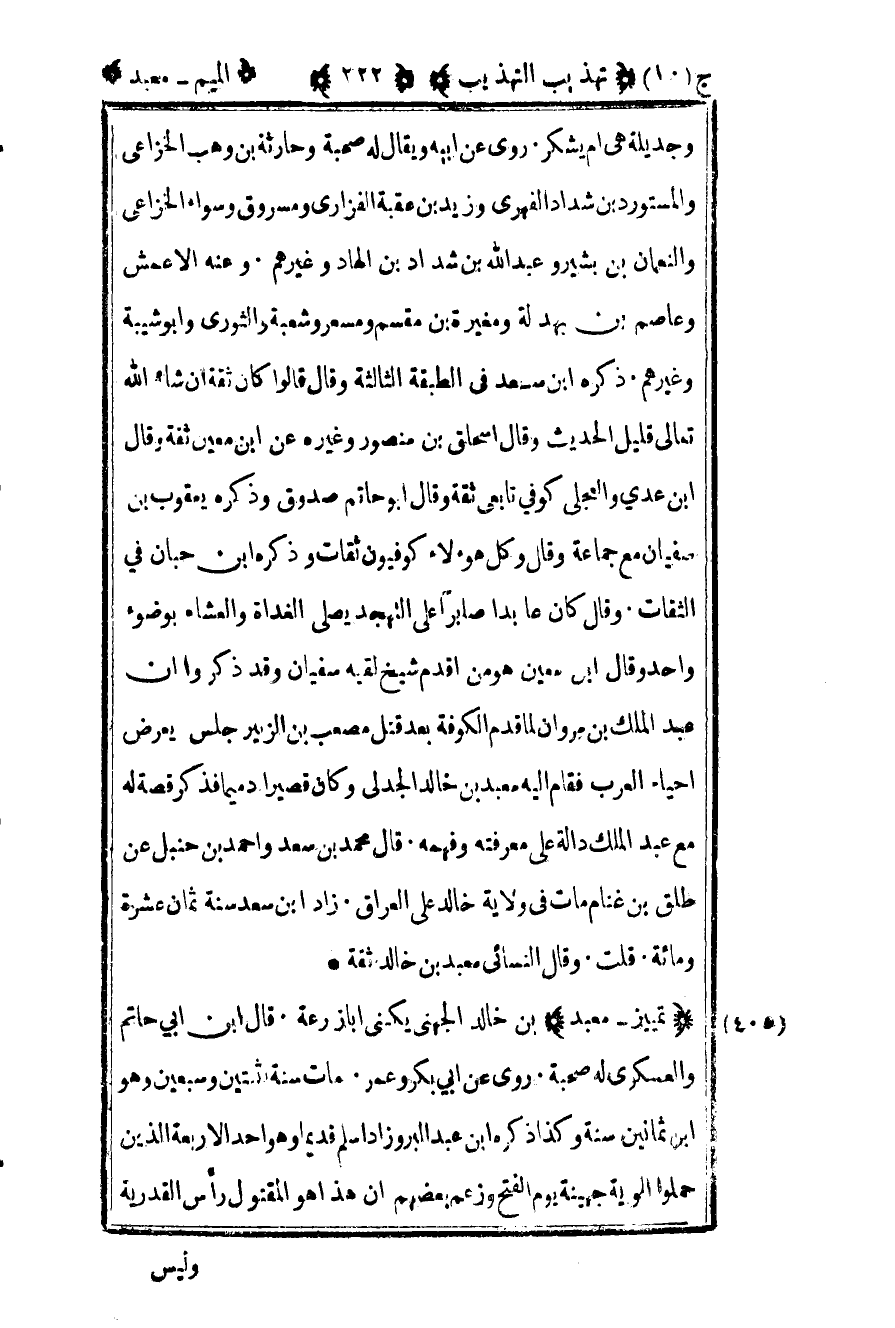 ج(١٠) ﴿ تهذيب التهذيب ﴾ ﴿ ٢٢٢ ﴾ ﴿ الميم ـ معبد ﴾
وجديلة هى ام يشكر · روى عن ابيه ويقال له صحبة وحارثة بن وهب الخزاعى
والمستورد بن شداد الفهرى وزيد بن عقبة الفزارى ومسروق وسواء الخزاعى
والنعمان بن بشير و عبدالله بن شداد بن الهاد وغيرهم · وعنه الاعمش
وعاصم بن بهدلة ومغيرة بن مقسم ومسعر وشعبة والثورى وابوشيبة
وغيرهم · ذكره ابن سعد فى الطبقة الثالثة وقال قالوا كان ثقة ان شاء الله
تعالى قليل الحديث وقال اسحاق بن منصور وغيره عن ابن معين ثقة وقال
ابن عدي والعجلى كوفي تابعى ثقة وقال ابوحاتم صدوق وذكره يعقوب بن
سفيان مع جماعة وقال وكل هوءلاء كوفيون ثقات وذكره ابن حبان في
الثقات · وقال كان عابدا صابراً على التهجد يصلى الغداة والعشاء بوضوء
واحد وقال ابن معين هو من اقدم شيخ لقيه سفيان وقد ذكروا ان
عبد الملك بن مروان لما قدم الكوفة بعد قتل مصعب بن الزبير جلس يعرض
احياء العرب فقام اليه معبد بن خالد الجدلى وكان قصيرا دميما فذكر قصة له
مع عبد الملك دالة على معرفته وفهمه · قال محمد بن سعد واحمد بن حنبل عن
طلق بن غنام مات فى ولاية خالد على العراق · زاد ابن سعد سنة ثمان عشرة
ومائة · قلت · وقال النسائى معبد بن خالد ثقة •
(٤٠٥) ﴿ تمييز ـ معبد ﴾ بن خالد الجهنى يكنى ابازرعة · قال ابن ابي حاتم
والعسكرى له صحبة · روى عن ابي بكر وعمر · مات سنة اثنتين وسبعين وهو
ابن ثمانين سنة وكذا ذكره ابن عبد البر وزاد اسلم قديما وهو احد الاربعة الذين
حملوا الوية جهينة يوم الفتح وزعم بعضهم ان هذا هو المقتول رأس القدرية
وليس